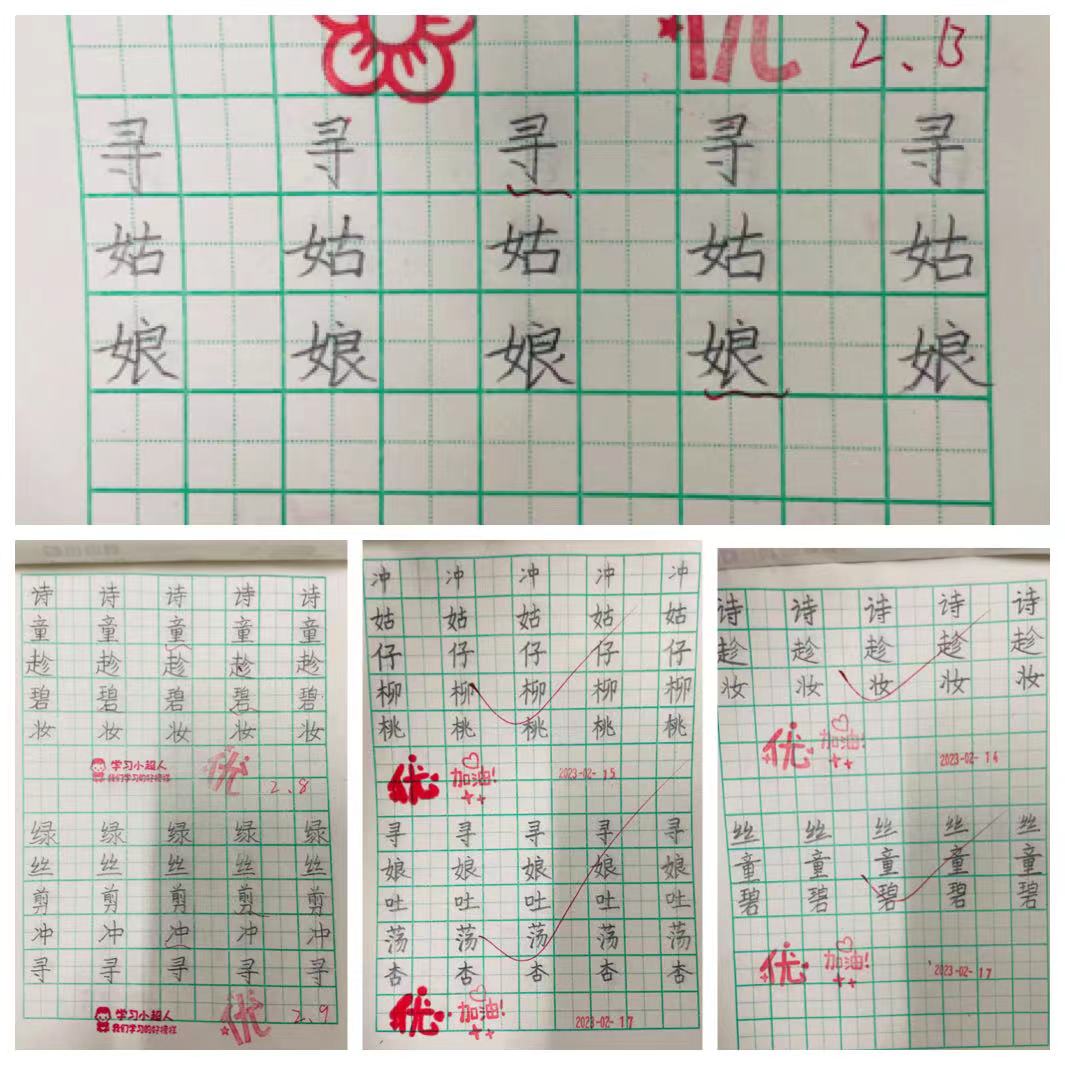 优 2、13
寻 寻 寻 寻 寻
姑 姑 姑 姑 姑
娘 娘 娘 娘 娘
诗 诗 诗 诗 诗
童 童 童 童 童
趁 趁 趁 趁 趁
碧 碧 碧 碧 碧
妆 妆 妆 妆 妆
学习小超人 优
我们学习的好榜样 2.8
绿 绿 绿 绿 绿
丝 丝 丝 丝 丝
剪 剪 剪 剪 剪
冲 冲 冲 冲 冲
寻 寻 寻 寻 寻
学习小超人 优
我们学习的好榜样 2.9
冲 冲 冲 冲 冲
姑 姑 姑 姑 姑
仔 仔 仔 仔 仔
柳 柳 柳 柳 柳
桃 桃 桃 桃 桃
优 加油! 2023-02-15
寻 寻 寻 寻 寻
娘 娘 娘 娘 娘
吐 吐 吐 吐 吐
荡 荡 荡 荡 荡
杏 杏 杏 杏 杏
优 加油! 2023-02-17
诗 诗 诗 诗 诗
趁 趁 趁 趁 趁
妆 妆 妆 妆 妆
优 加油! 2023-02-14
丝 丝 丝 丝 丝
童 童 童 童 童
碧 碧 碧 碧 碧
优 加油! 2023-02-17